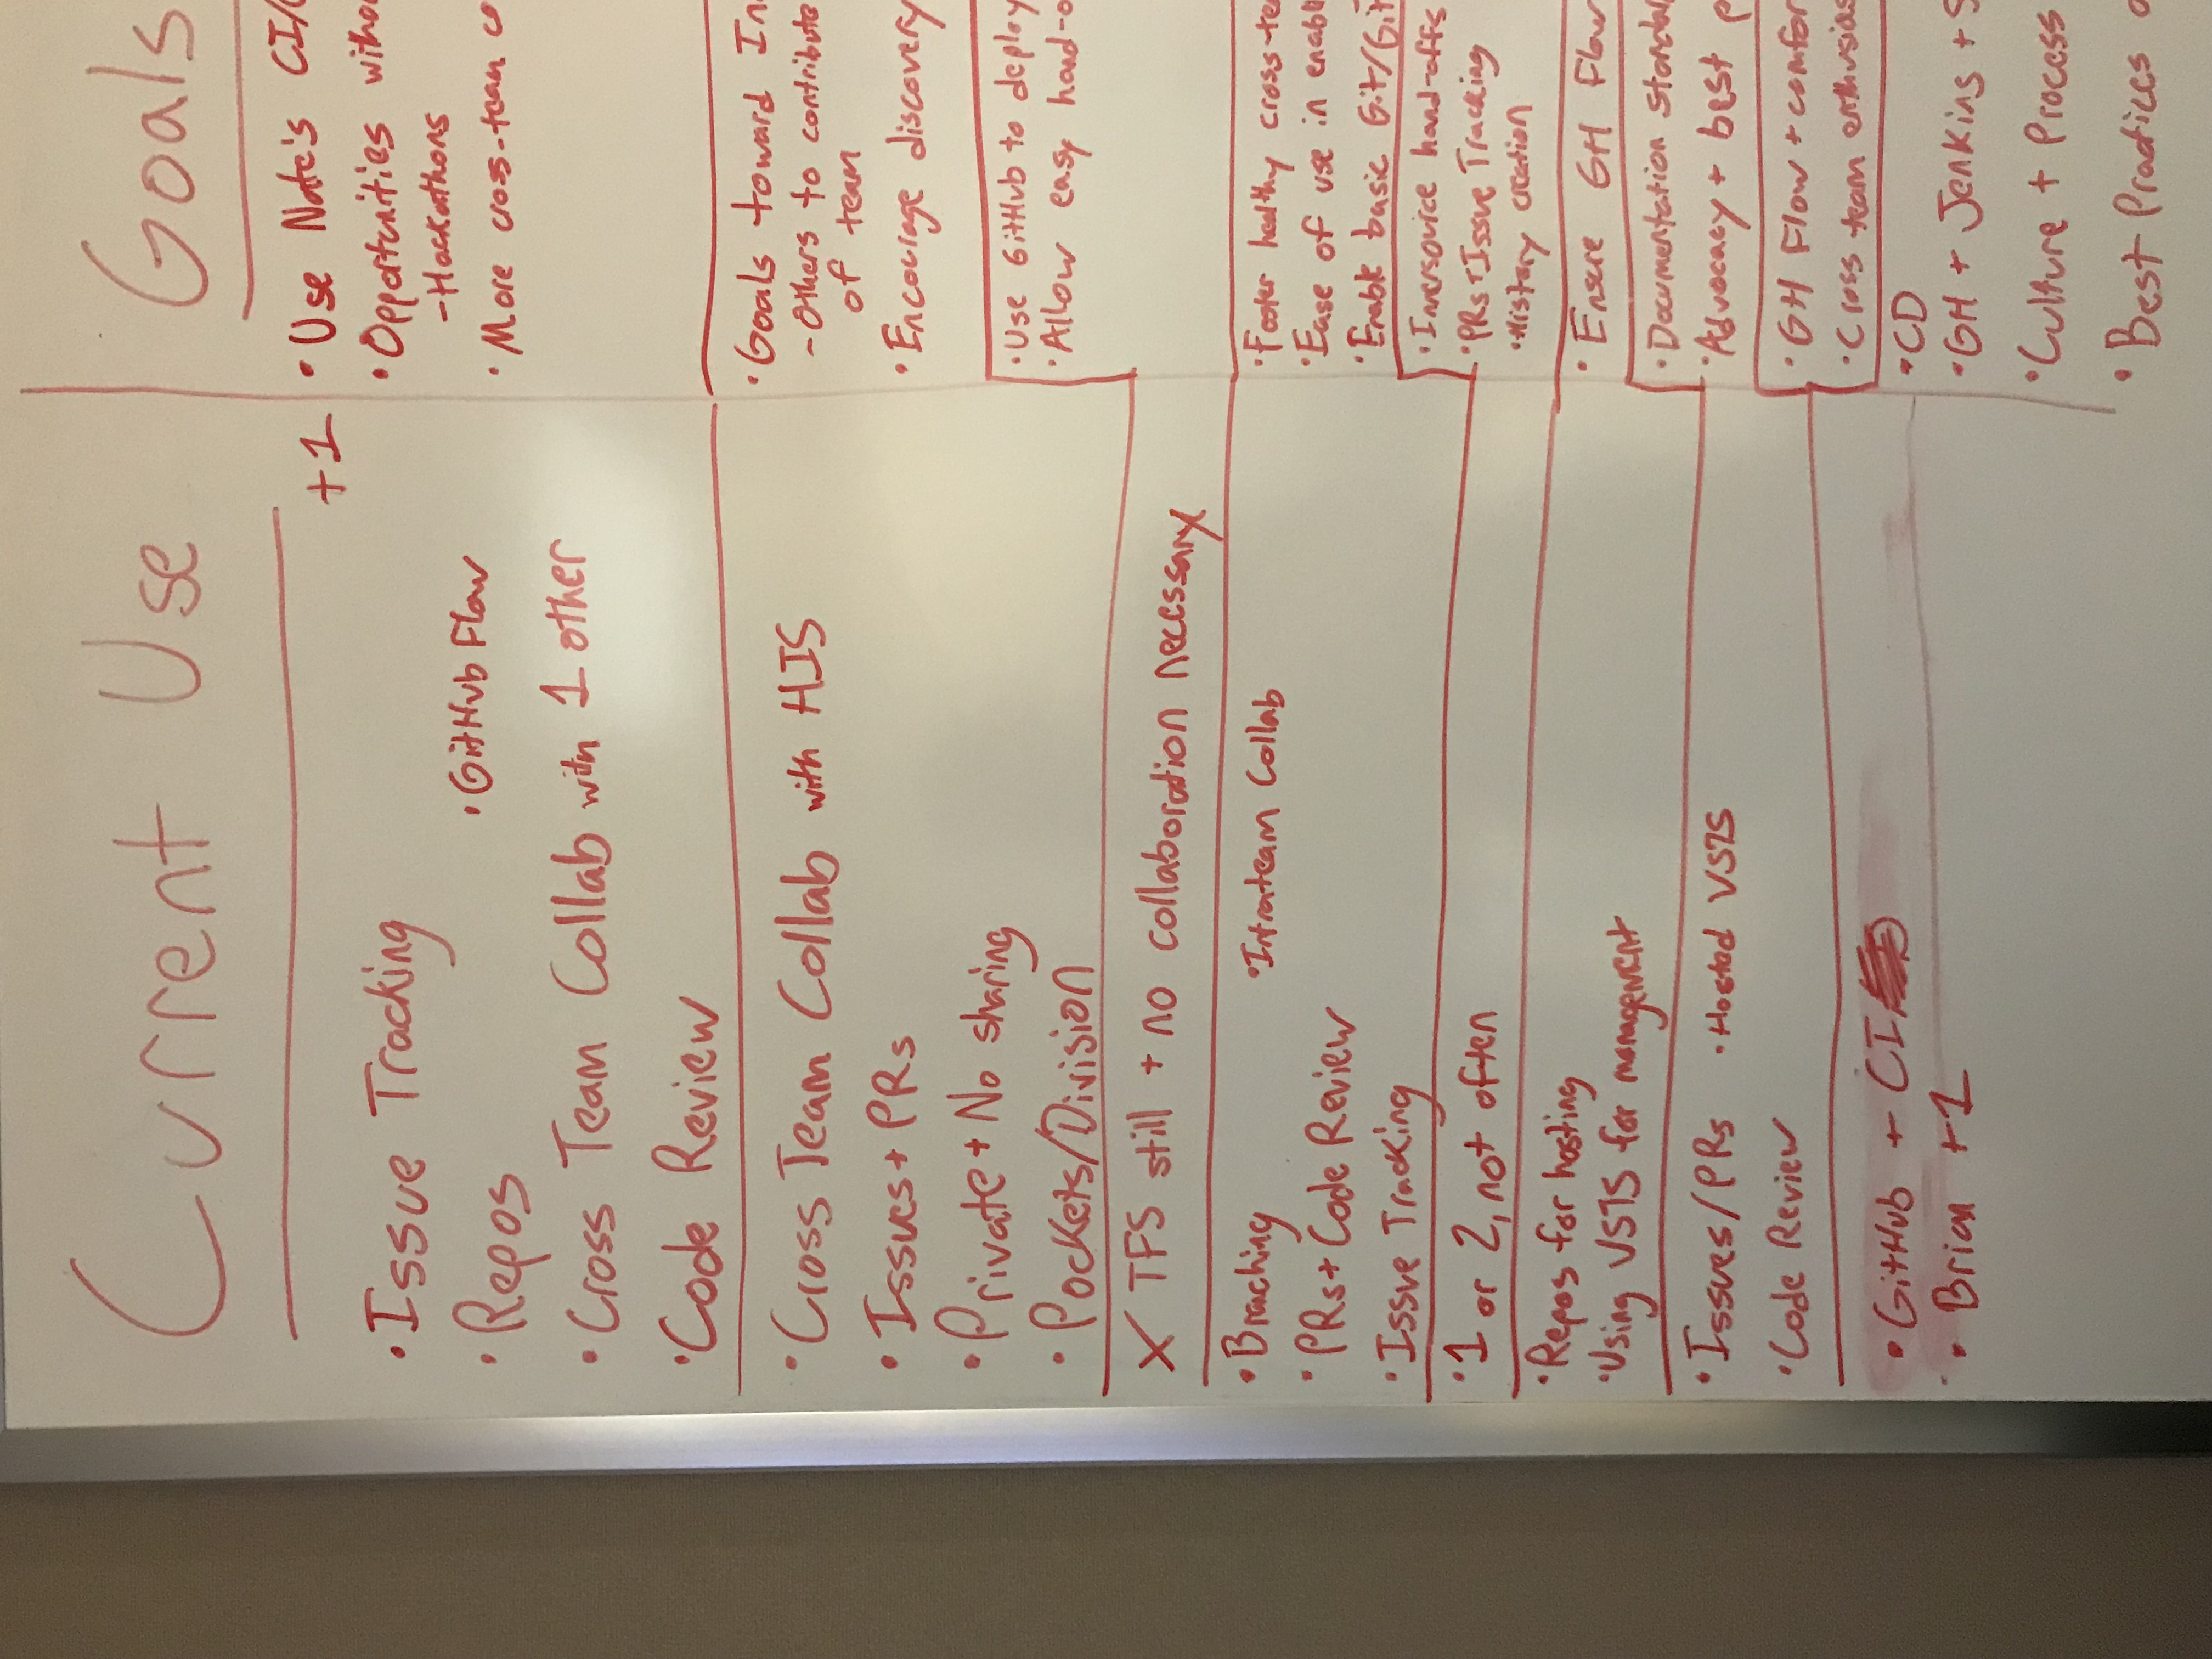 Current Use
• Issue Tracking
• Repos
• GitHub Flow
• Cross Team Collab with 1 other
• Code Review
• Cross Team Collab with HIS
• Issues + PRs
• Private + No sharing
• Pockets/Division
X TFS still + no collaboration necessary
• Branching
• Intrateam Collab
• PRs + Code Review
• Issue Tracking
• 1 or 2, not often
• Repos for hosting
• Using VSTS for management
• Issues/PRs
• Hosted VSTS
• Code Review
• GitHub + CI
• Brian +1
Goals
+1 • Use Nate's CI/
• Opportunities
- Hackathons
• More cross-team
• Goals toward
- Others to contribute
of team
• Encourage discovery
• Use GitHub to deploy
• Allow easy hand-
• Foster healthy cross-
• Ease of use in
• Enable basic Git/
• Innersource hand-offs
• PRs + Issue Tracking
• History creation
• Ensure GH Flow
• Documentation
• Advocacy + best
• GH Flow +
• Cross team
• CD
• GH + Jenkins +
• Culture + Process
• Best Practices